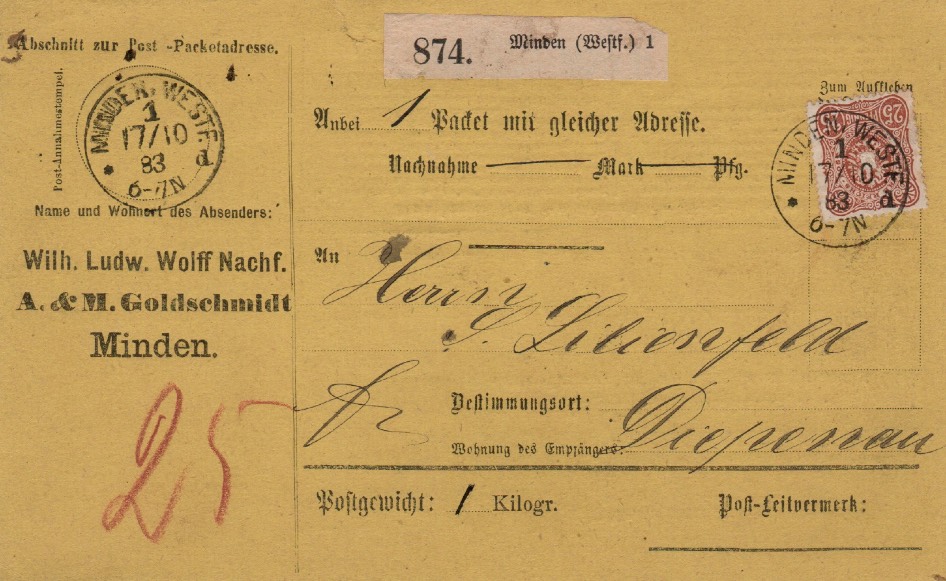 Abschnitt zur Post-Packetadresse.
Post-Annahmestempel.
MINDEN, WESTF.
1
17/10
83
6-7N
* d
Name und Wohnort des Absenders:
Wilh. Ludw. Wolff Nachf.
A. & M. Goldschmidt
Minden.
25
874. Minden (Westf.) 1
Zum Aufkleben
Anbei 1 Packet mit gleicher Adresse.
Nachnahme Mark Pfg.
25
MINDEN, WESTF.
1
17/10
83
6-7N
* d
An
Herrn
S. Lilienfeld
Bestimmungsort:
Wohnung des Empfängers: Diepenau
Postgewicht: 1 Kilogr.
Post-Leitvermerk: